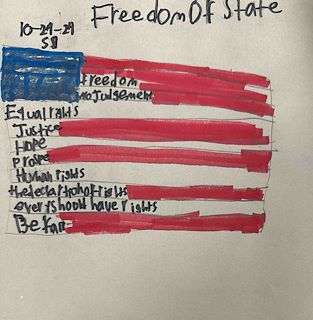 Freedom Of State
10-29-29
S8
freedom
no Judgement
Equal rights
Justice
Hope
Prope
Human rights
the declartion of rights
every should have rights
Be fair